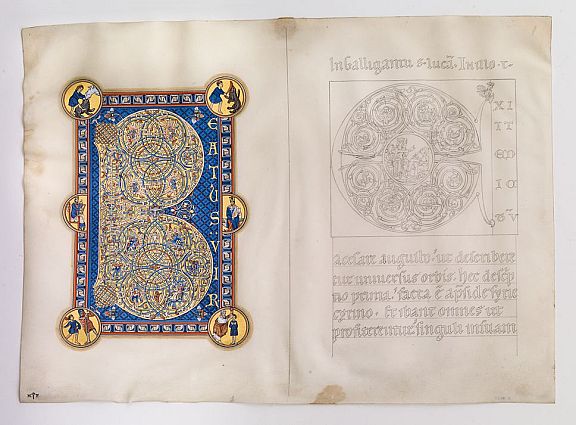 B
EATUS VIR
In Galligantu S. lucā. In illo t.
E
XI
IT
EDI
acesare augusto. ut describere
tur universus orbis. hec descp
no prima. facta ē apside syrie
cyrino. Et ibant omnes ut
profiterentur singuli in suam